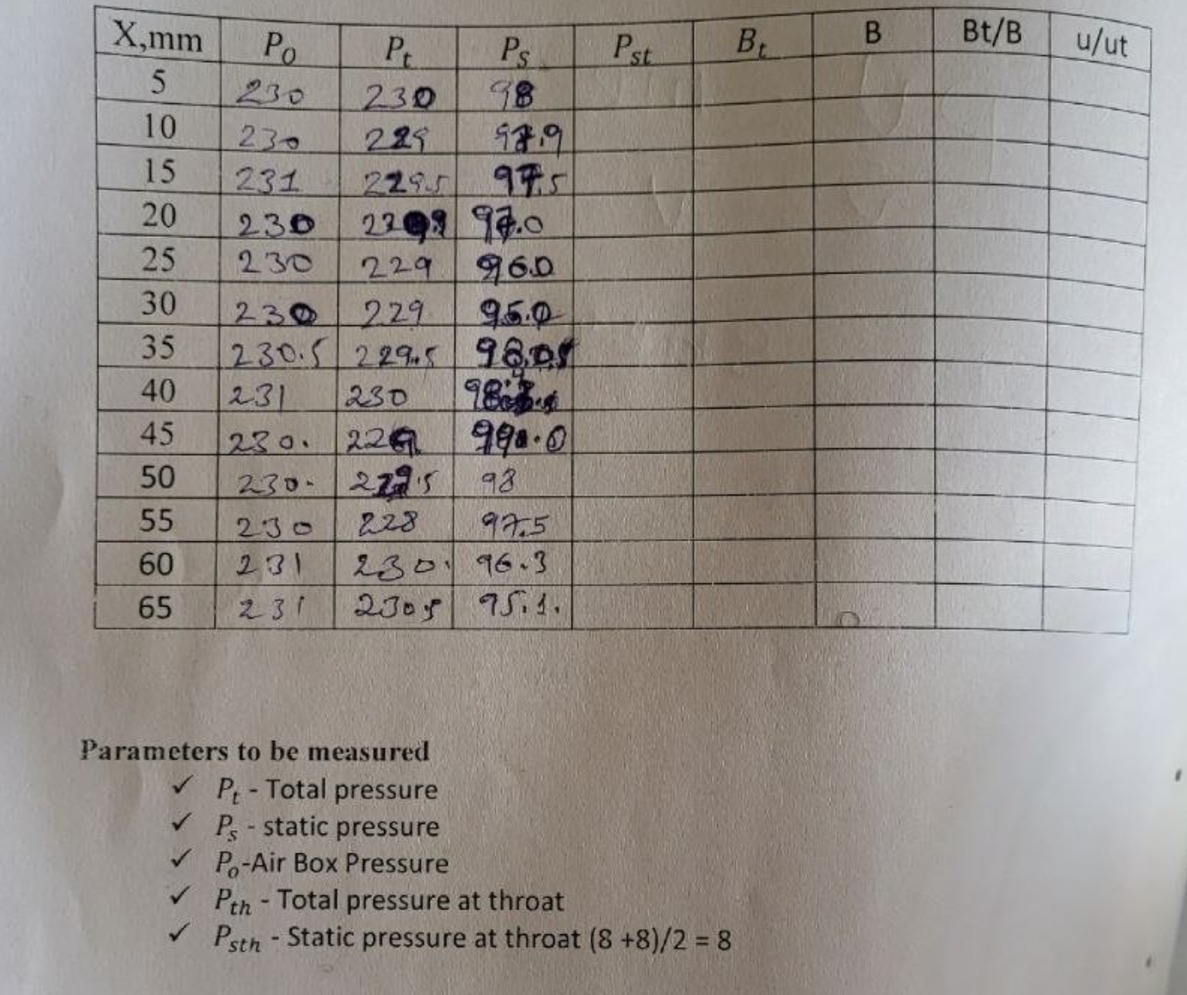 X,mm P₀ Pₜ Pₛ Pₛₜ Bₜ B Bt/B u/ut
5 230 230 98
10 230 229 97.9
15 231 229.5 97.5
20 230 97.0
25 230 229 96.0
30 230 229 95.0
35 230.5 229.5
40 231 230
45 230. 229
50 230. 98
55 230 228 97.5
60 231 230. 96.3
65 231 230.5 95.1.
Parameters to be measured
✓ Pₜ - Total pressure
✓ Pₛ - static pressure
✓ P₀-Air Box Pressure
✓ Pₜₕ - Total pressure at throat
✓ Pₛₜₕ - Static pressure at throat (8 +8)/2 = 8